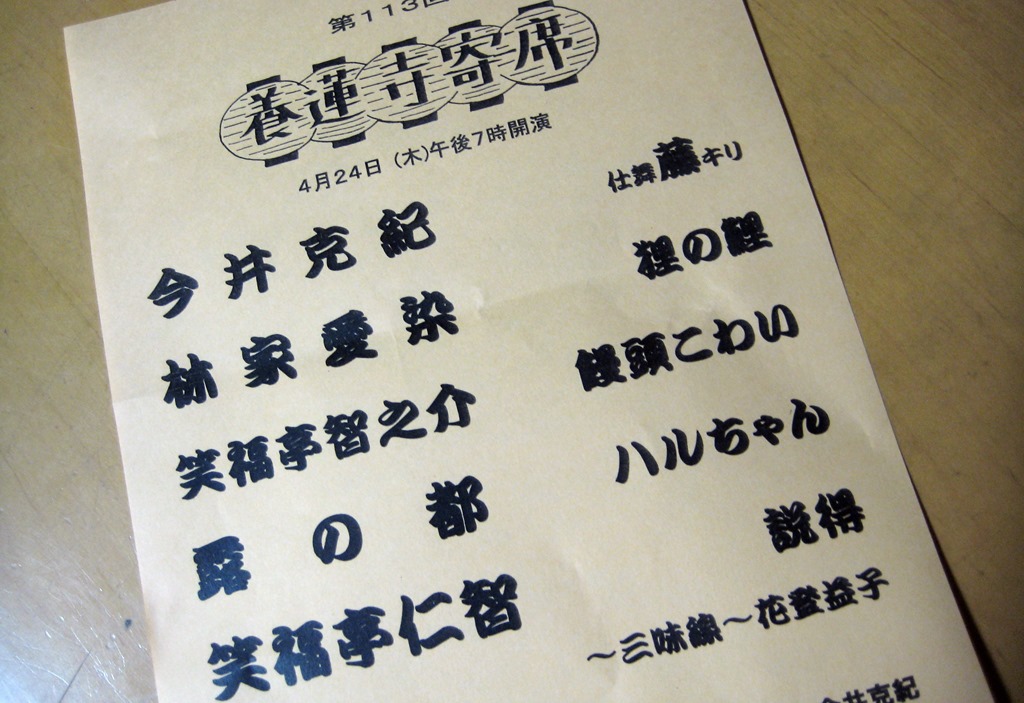 第113回
養蓮寺寄席
4月24日（木）午後7時開演
今井克紀 仕舞 藤キリ
林家愛染 狸の鯉
笑福亭智之介 饅頭こわい
露の都 ハルちゃん
笑福亭仁智 説得
～三味線～花登益子
今井克紀